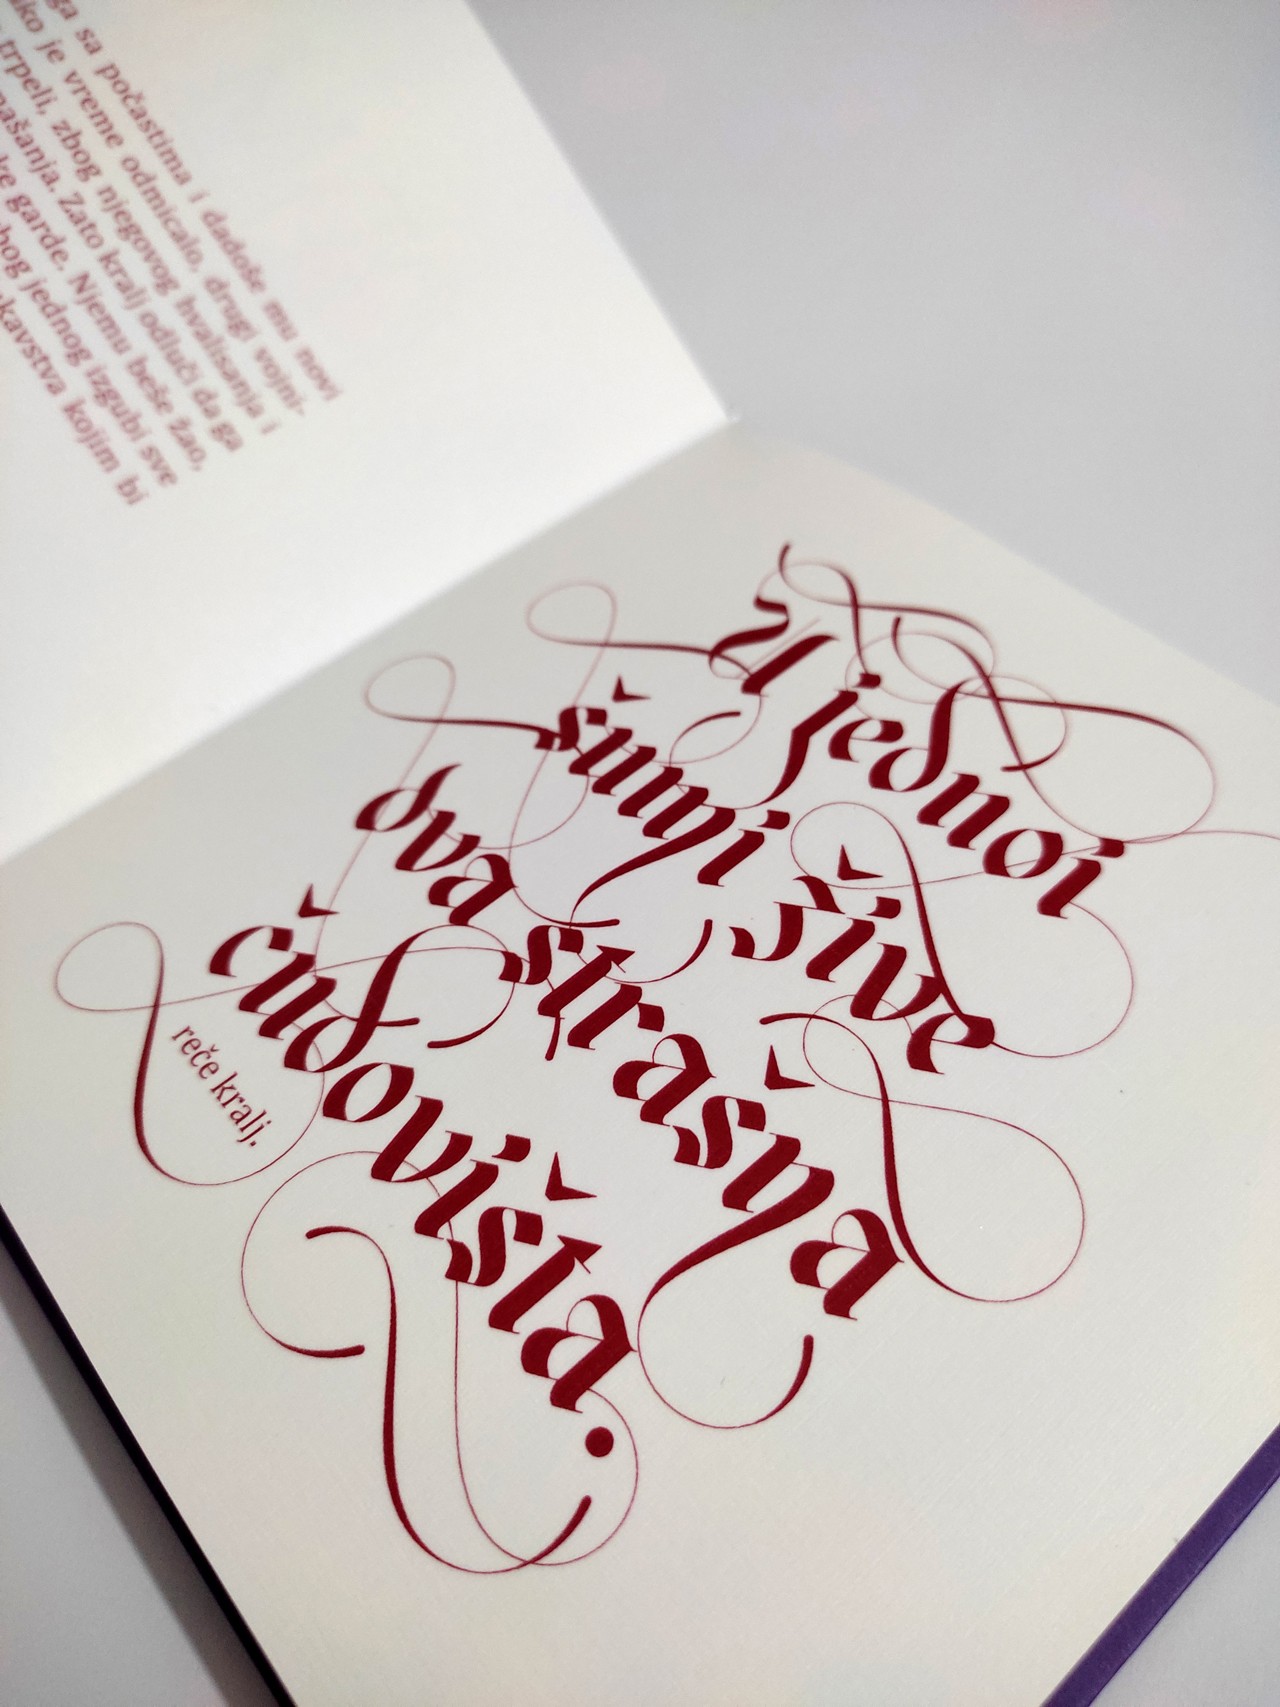 ga sa počastima i dadoše mu novi
ako je vreme odmicalo, drugi vojni-
trpeli, zbog njegovog hvalisanja i
našanja. Zato kralj odluči da ga
ke garde. Njemu beše žao,
bog jednog izgubi sve
kavstva kojim bi
u jednoj
šumi žive
dva strašna
čudovišta.
reče kralj.